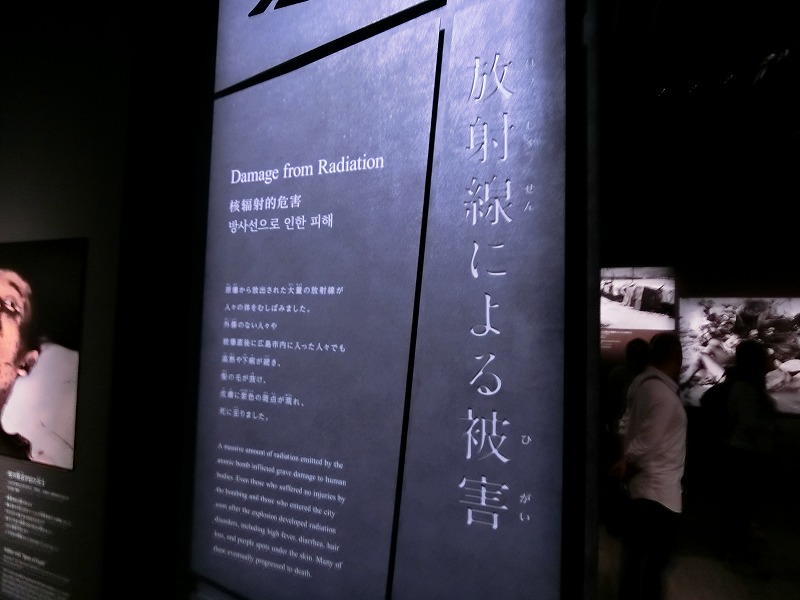 放射線による被害
ほうしゃせん
ひがい
Damage from Radiation
核辐射的危害
방사선으로 인한 피해
原爆から放出された大量の放射線が
人々の体をむしばみました。
外傷のない人々や
被爆直後に広島市内に入った人々でも
高熱や下痢が続き、
髪の毛が抜け、
皮膚に紫色の斑点が現れ、
死に至りました。
A massive amount of radiation emitted by the
atomic bomb inflicted grave damage to human
bodies. Even those who suffered no injuries by
the bombing and those who entered the city
soon after the explosion developed radiation
disorders, including high fever, diarrhea, hair
loss, and purple spots under the skin. Many of
them eventually progressed to death.